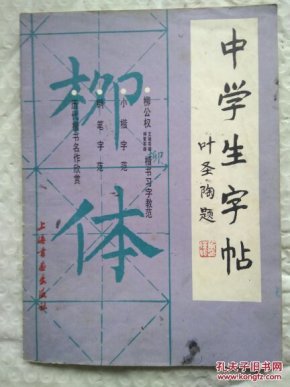 中学生字帖
叶圣陶题
柳体
柳公权
楷书习字教范
小楷字范
钢笔字范
历代楷书名作欣赏
上海书画出版社
孔夫子旧书网